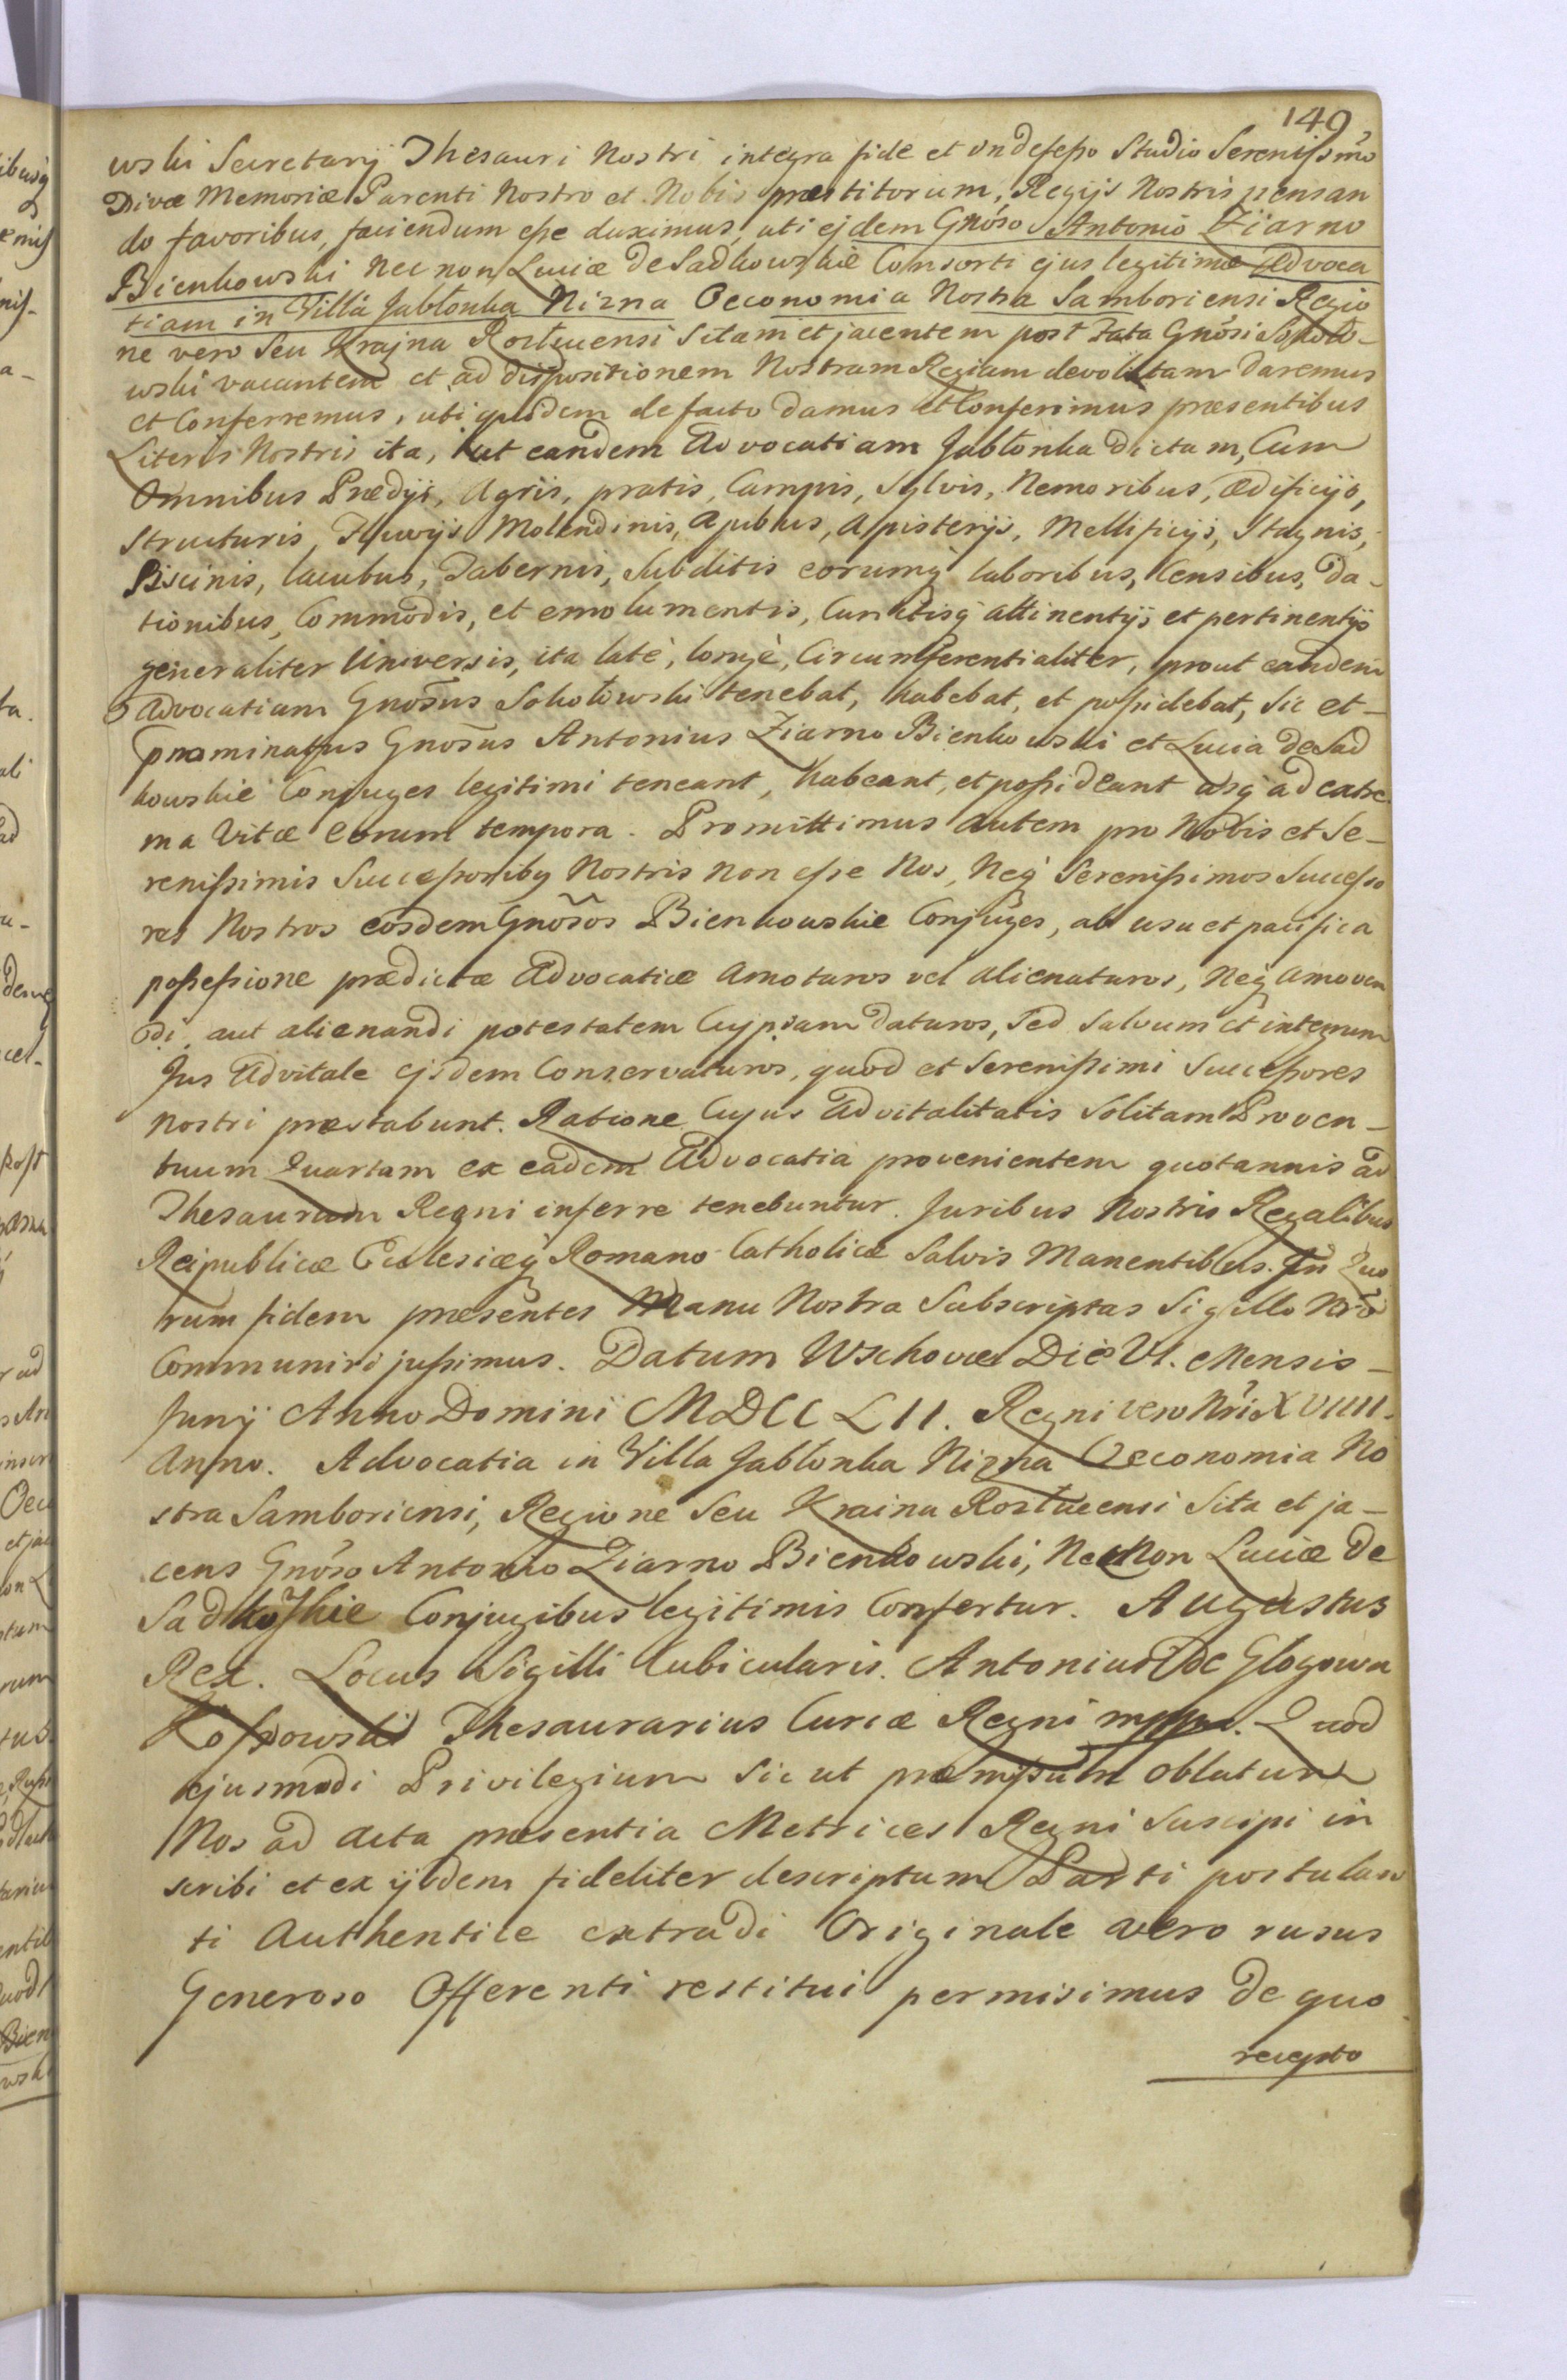 149
wski Secretarij Thesauri Nostri integra fide et indefesso Studio Serenissmo
Divæ Memoriæ Parenti Nostro et Nobis præstitorum, Regijs Nostris pensan
do favoribus, faciendum esse duximus, uti ejdem Gnoso Antonio Ziarno
Bienkowski nec non Luciæ de Sadkowskie Consorti ejus legitimæ Advoca
tiam in Villa Jabłonka Nizna Oeconomia Nostra Samboriensi Regio
ne vero Seu Krajna Roztucensi Sitam et jacentem post Fata Gnosi Sokoło-
wski vacantem et ad dispositionem Nostram Regiam devolutam daremus
et Conferremus, uti quidem de facto damus et Conferimus præsentibus
Literis Nostris ita, ut eandem Advocatiam Jabłonka dictam, Cum
Omnibus Prædijs, Agris, pratis, Campis, Sylvis, Nemoribus, ædificijs,
Structuris, Fluvijs Molendinis, Apibus, Apisterijs, Mellificijs, Stagnis,
Piscinis, lacubus, Tabernis, Subditis eorumq laboribus, Censibus, Da-
tionibus, Commodis, et emolumentis, Cunctisq attinentijs et pertinentijs
generaliter Universis, ita latè, longè, Circumferentialiter, prout eandem
Advocatiam Gnosus Sokołowski tenebat, habebat, et possidebat, sic et-
prænominatus Gnosus Antonius Ziarno Bienkowski et Lucia de Sad
kowskie Conjuges legitimi teneant, habeant, et possideant usq ad extre
ma Vitæ eorum tempora. Promittimus autem pro Nobis et Se-
renissimis Successoriby Nostris non esse Nos, Neq Serenissimos Successo
res Nostros eosdem Gnosos Bienkowskie Conjuges, ab usu et pacifica
possessione prædictæ Advocatiæ Amoturos vel alienaturos, Neq amoven
di, aut alienandi potestatem Cujpiam daturos, Sed Salvum et integrum
Jus Advitale ejsdem Conservaturos, quod et Serenissimi Successores
nostri præstabunt. Ratione Cujus Advitalitatis Solitam Proven-
tuum Quartam ex eadem Advocatia provenientem quotannis ad
Thesaurum Regni inferre tenebuntur. Juribus Nostris Regalibus
Reipublicæ Ecclesiæq Romano Catholicæ Salvis Manentibus. In Quo
rum fidem præsentes Manu Nostra Subscriptas Sigillo Nro
Communiri jussimus. Datum Wschovæ Die VI. Mensis-
Junij Anno Domini MDCCLII. Regni vero Nri XVIIII.
Anno. Advocatia in Villa Jabłonka Nizna Oeconomia No
stra Samboriensi, Regione Seu Kraina Roztucensi Sita et ja-
cens Gnoso Antonio Ziarno Bienkowski, Nec Non Luciæ De
Sadkowskie Conjugibus legitimis Confertur. Augustus
Rex. Locus Sigilli Cubicularis. Antonius De Glogowa
Kossowski Thesaurarius Curiæ Regni mppa. Quod
ejusmodi Privilegium Sic ut præmissum oblatum
Nos ad acta præsentia Metrices Regni Suscipi in
scribi et ex ijsdem fideliter descriptum Parti postulan
ti Authentice extradi Originale vero rusus
Generoso Offerenti restitui permisimus De quo
recepto